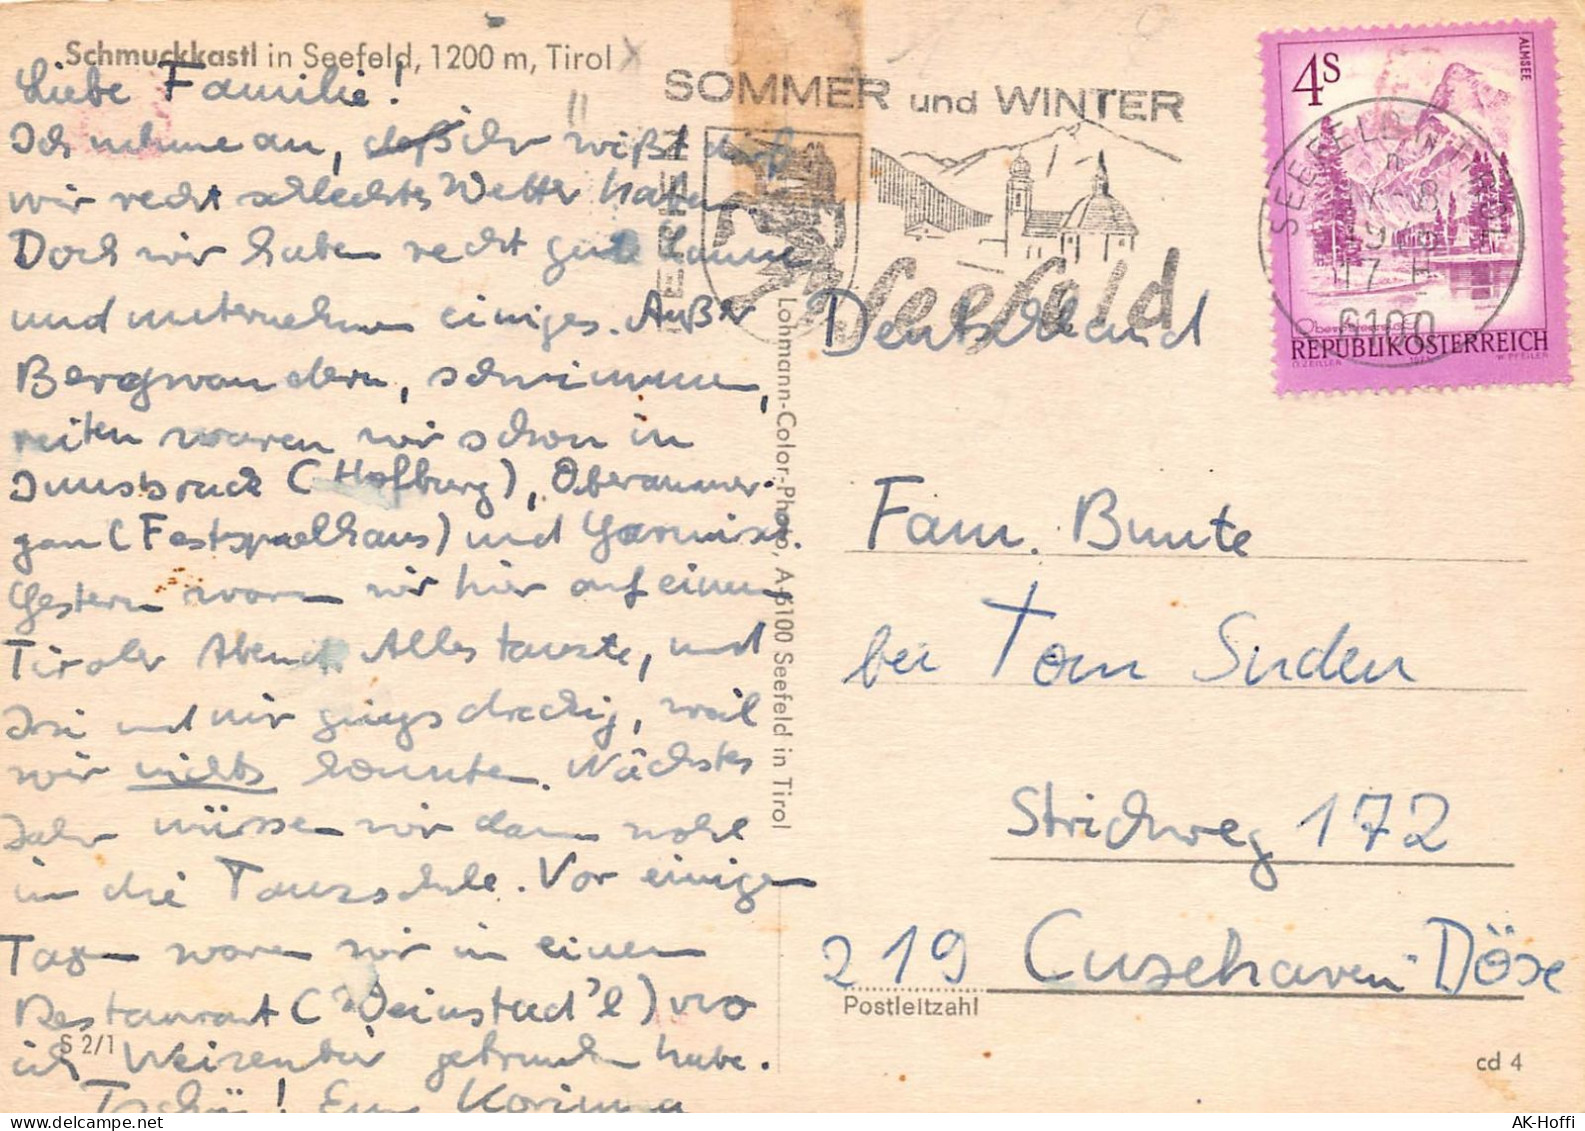 Schmuckkastl in Seefeld, 1200 m, Tirol
Liebe Familie!
Ich nehme an, daß ihr wißt daß
wir recht schlechtes Wetter haben.
Doch wir haben recht gute Laune
und unternehmen einiges. Außer
Bergwandern, schwimmen,
reiten waren wir schon in
Innsbruck (Hofburg), Oberammer-
gau (Festspielhaus) und Garmisch.
Gestern waren wir hier auf einem
Tiroler Abend. Alles tanzte, und
Isi und mir ging's dreckig, weil
wir nichts konnten. Nächstes
Jahr müssen wir dann wohl
in die Tanzschule. Vor einigen
Tagen waren wir in einem
Restaurant (Weinstad'l) wo
ich Weizenbier getrunken habe.
Tschü! Eure Korinna
S 2/1
Lohmann-Color-Photo, A-6100 Seefeld in Tirol
SOMMER und WINTER
Seefeld
4S
ALMSEE
SEEFELD IN TIROL
6100
REPUBLIK ÖSTERREICH
W. PFEILER
Deutschland
Fam. Bunte
bei Tom Suden
Strichweg 172
219 Cuxehaven-Döse
Postleitzahl
cd 4
AK-Hoffi